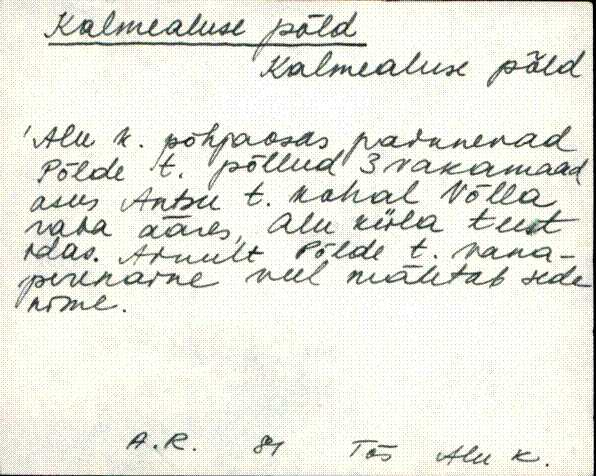 Kalmealuse põld
Kalmealuse põld
Alu k. põhjaosas painnenad
Põlde t. põllud 3 vakamaad
asus Antsu t. kohal Võlla
raba ääres, Alu küla teest
idas. Ainult Põlde t. vana-
perenaine veel mäletab seda
nime.
A.R. 81 Tõs Alu k.